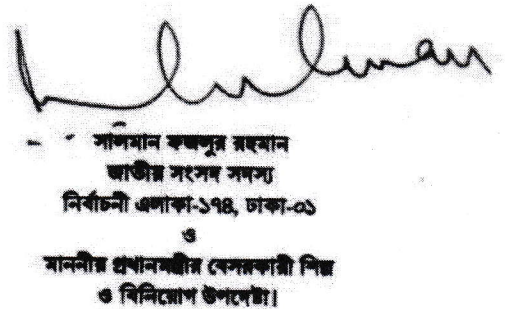 সালমান ফজলুর রহমান
জাতীয় সংসদ সদস্য
নির্বাচনী এলাকা-১৭৪, ঢাকা-০১
ও
মাননীয় প্রধানমন্ত্রীর বেসরকারী শিল্প
ও বিনিয়োগ উপদেষ্টা।